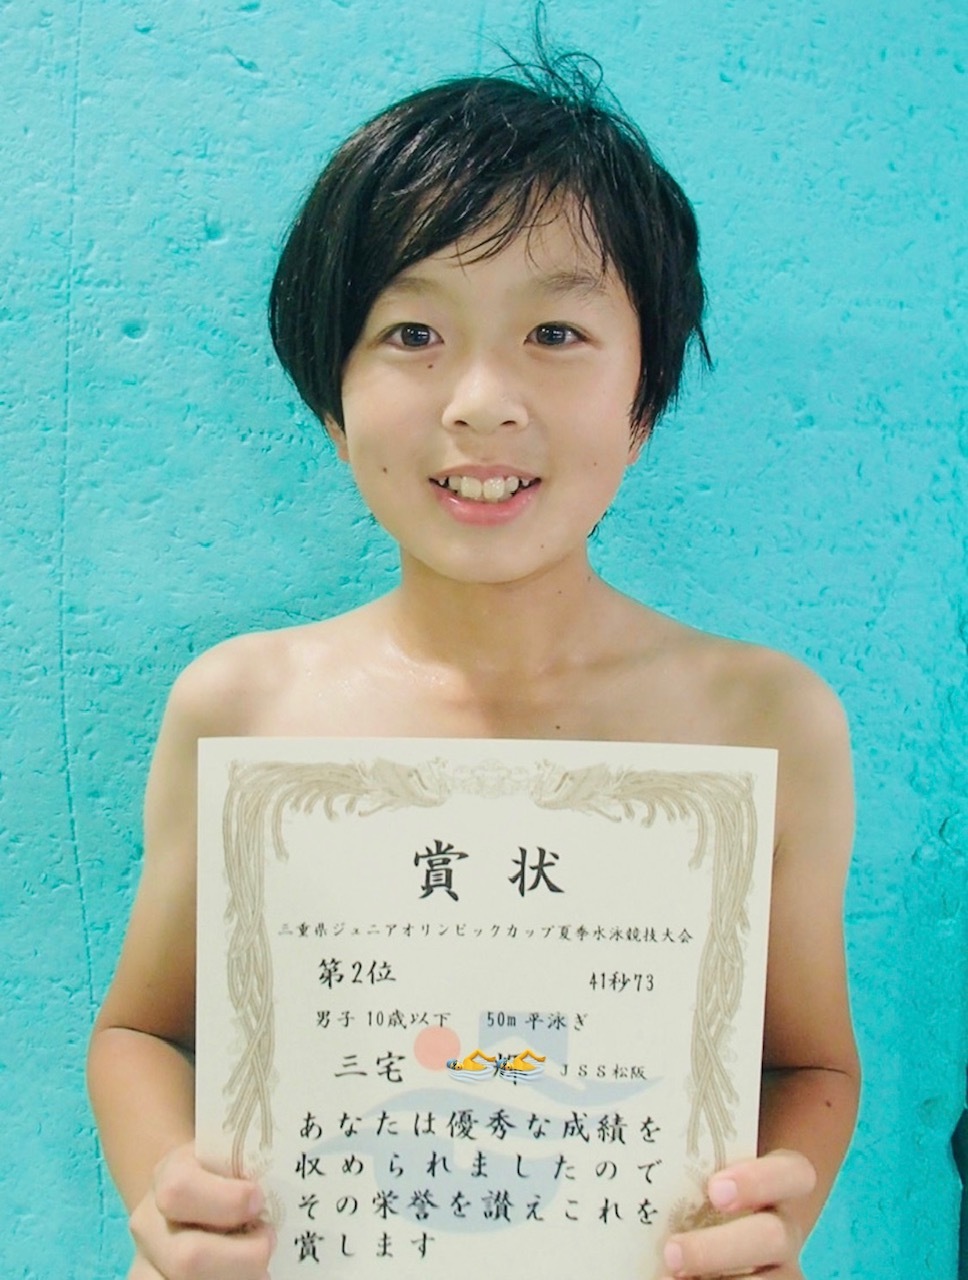 賞状
三重県ジュニアオリンピックカップ夏季水泳競技大会
第2位 41秒73
男子 10歳以下 50m 平泳ぎ
三宅 輝 JSS松阪
あなたは優秀な成績を
収められましたので
その栄誉を讃えこれを
賞します